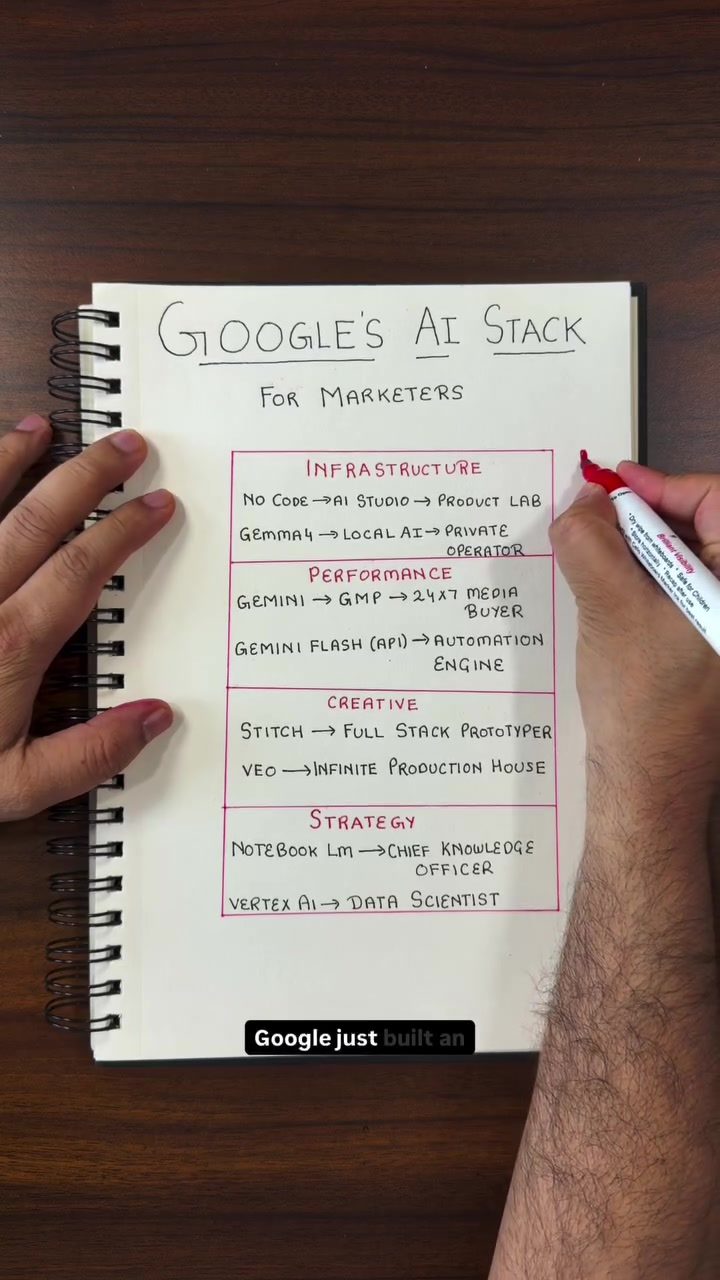 GOOGLE'S AI STACK
FOR MARKETERS
INFRASTRUCTURE
NO CODE → AI STUDIO → PRODUCT LAB
GEMMA4 → LOCAL AI → PRIVATE
OPERATOR
PERFORMANCE
GEMINI → GMP → 24X7 MEDIA
BUYER
GEMINI FLASH (API) → AUTOMATION
ENGINE
CREATIVE
STITCH → FULL STACK PROTOTYPER
VEO → INFINITE PRODUCTION HOUSE
STRATEGY
NOTEBOOK LM → CHIEF KNOWLEDGE
OFFICER
VERTEX AI → DATA SCIENTIST
Brilliant Visibility
• Dry wipe from whiteboards • Safe for Children
Google just built an